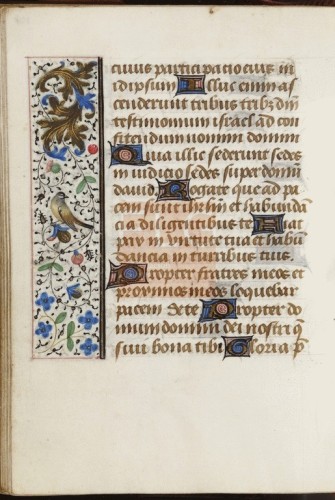 cuius participacio eius in
idipsum Illuc enim as
cenderunt tribus trib9 dm̄
testimonium israel ad con
fitendum nomini domini
Quia illic sederunt sedes
in iudicio sedes super domū
dauid Rogate que ad pa
cem sunt ihrlm et habundā
cia diligentibus te Fiat
pax in virtute tua et habū
dancia in turribus tuis
Propter fratres meos et
proximos meos loquebar
pacem de te Propter do
mum domini dei nostri q̄
siui bona tibi Gloria p̄